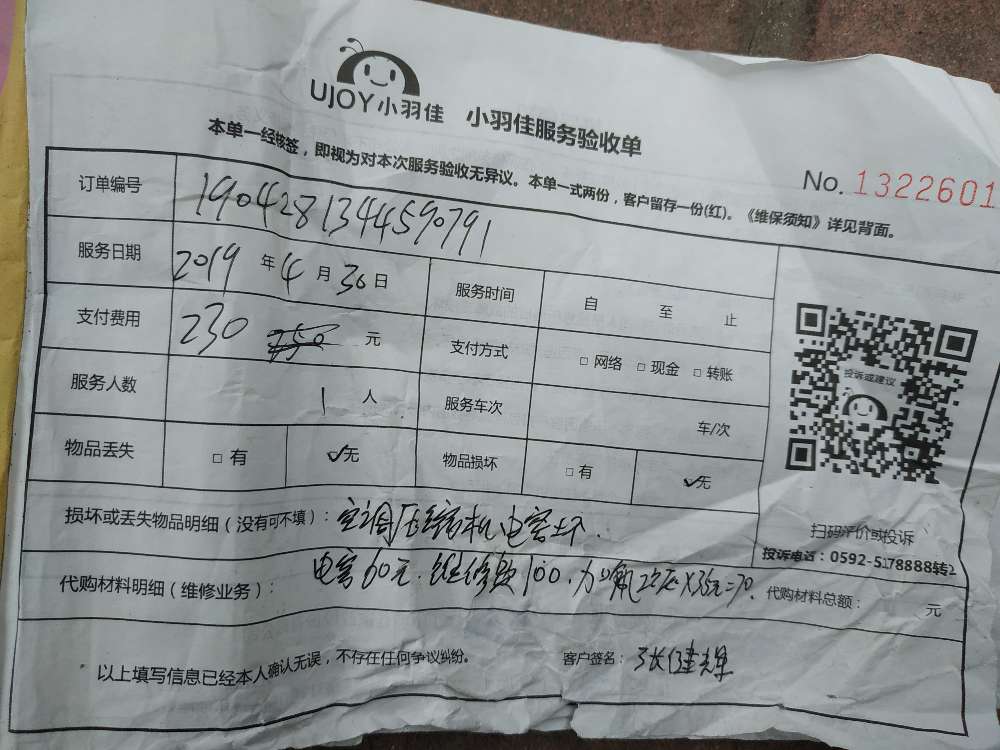 UJOY小羽佳 小羽佳服务验收单
本单一经核签，即视为对本次服务验收无异议。本单一式两份，客户留存一份(红)。《维保须知》详见背面。
No. 1322601
订单编号 1904281344590791
服务日期 2019 年 4 月 30 日 服务时间 自 至 止
支付费用 230 元 支付方式 □ 网络 □ 现金 □ 转账
服务人数 1 人 服务车次 车/次
物品丢失 □ 有 ✓无 物品损坏 □ 有 ✓无
投诉或建议
扫码评价或投诉
投诉电话：0592-5178888转2
损坏或丢失物品明细（没有可不填）：空调压缩机电容坏.
代购材料明细（维修业务）：电容60元.维修费100,加氟2定压X35元=70. 代购材料总额： 元
以上填写信息已经本人确认无误，不存在任何争议纠纷。 客户签名：张健辉